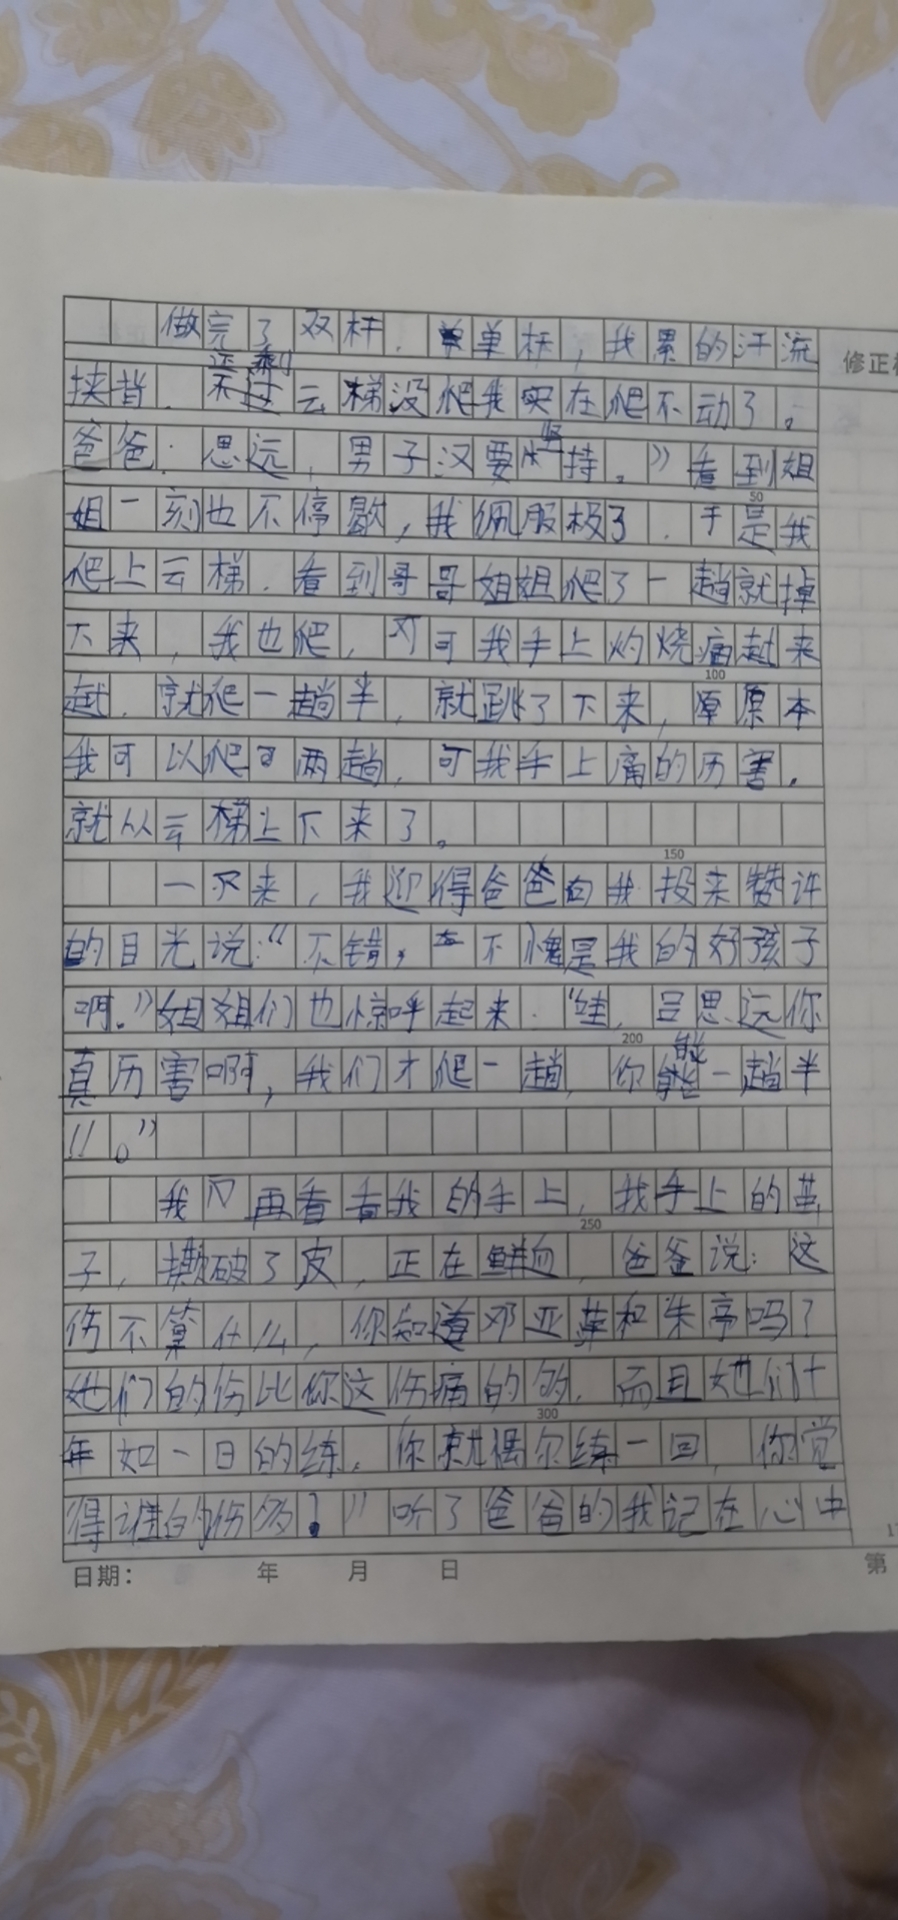 做完了双杆.单杠,我累的汗流
还剩
挟背.不过云梯没爬我实在爬不动了。
爸爸:思远,男子汉要坚持。”看到姐
50
姐一刻也不停歇,我佩服极了.于是我
爬上云梯.看到哥哥姐姐爬了一趟就掉
下来,我也爬,可我手上灼烧痛越来
100
越.就爬一趟半,就跳了下来,原本
我可以爬两趟,可我手上痛的历害.
就从云梯上下来了。
150
一下来,我迎得爸爸向我投来赞许
的目光说:“不错,不愧是我的好孩子
啊.”姐姐们也惊呼起来.“哇,吕思远你
200
真历害啊,我们才爬一趟,你能一趟半
!!。”
我再看看我的手上,我手上的茧
250
子,撕破了皮,正在鲜血,爸爸说:这
伤不算什么,你知道邓亚萍和朱亭吗?
她们的伤比你这伤痛的多,而且她们十
300
年如一日的练.你就偶尔练一回,你觉
得谁的伤多?”听了爸爸的我记在心中
修正
日期: 年 月 日
第